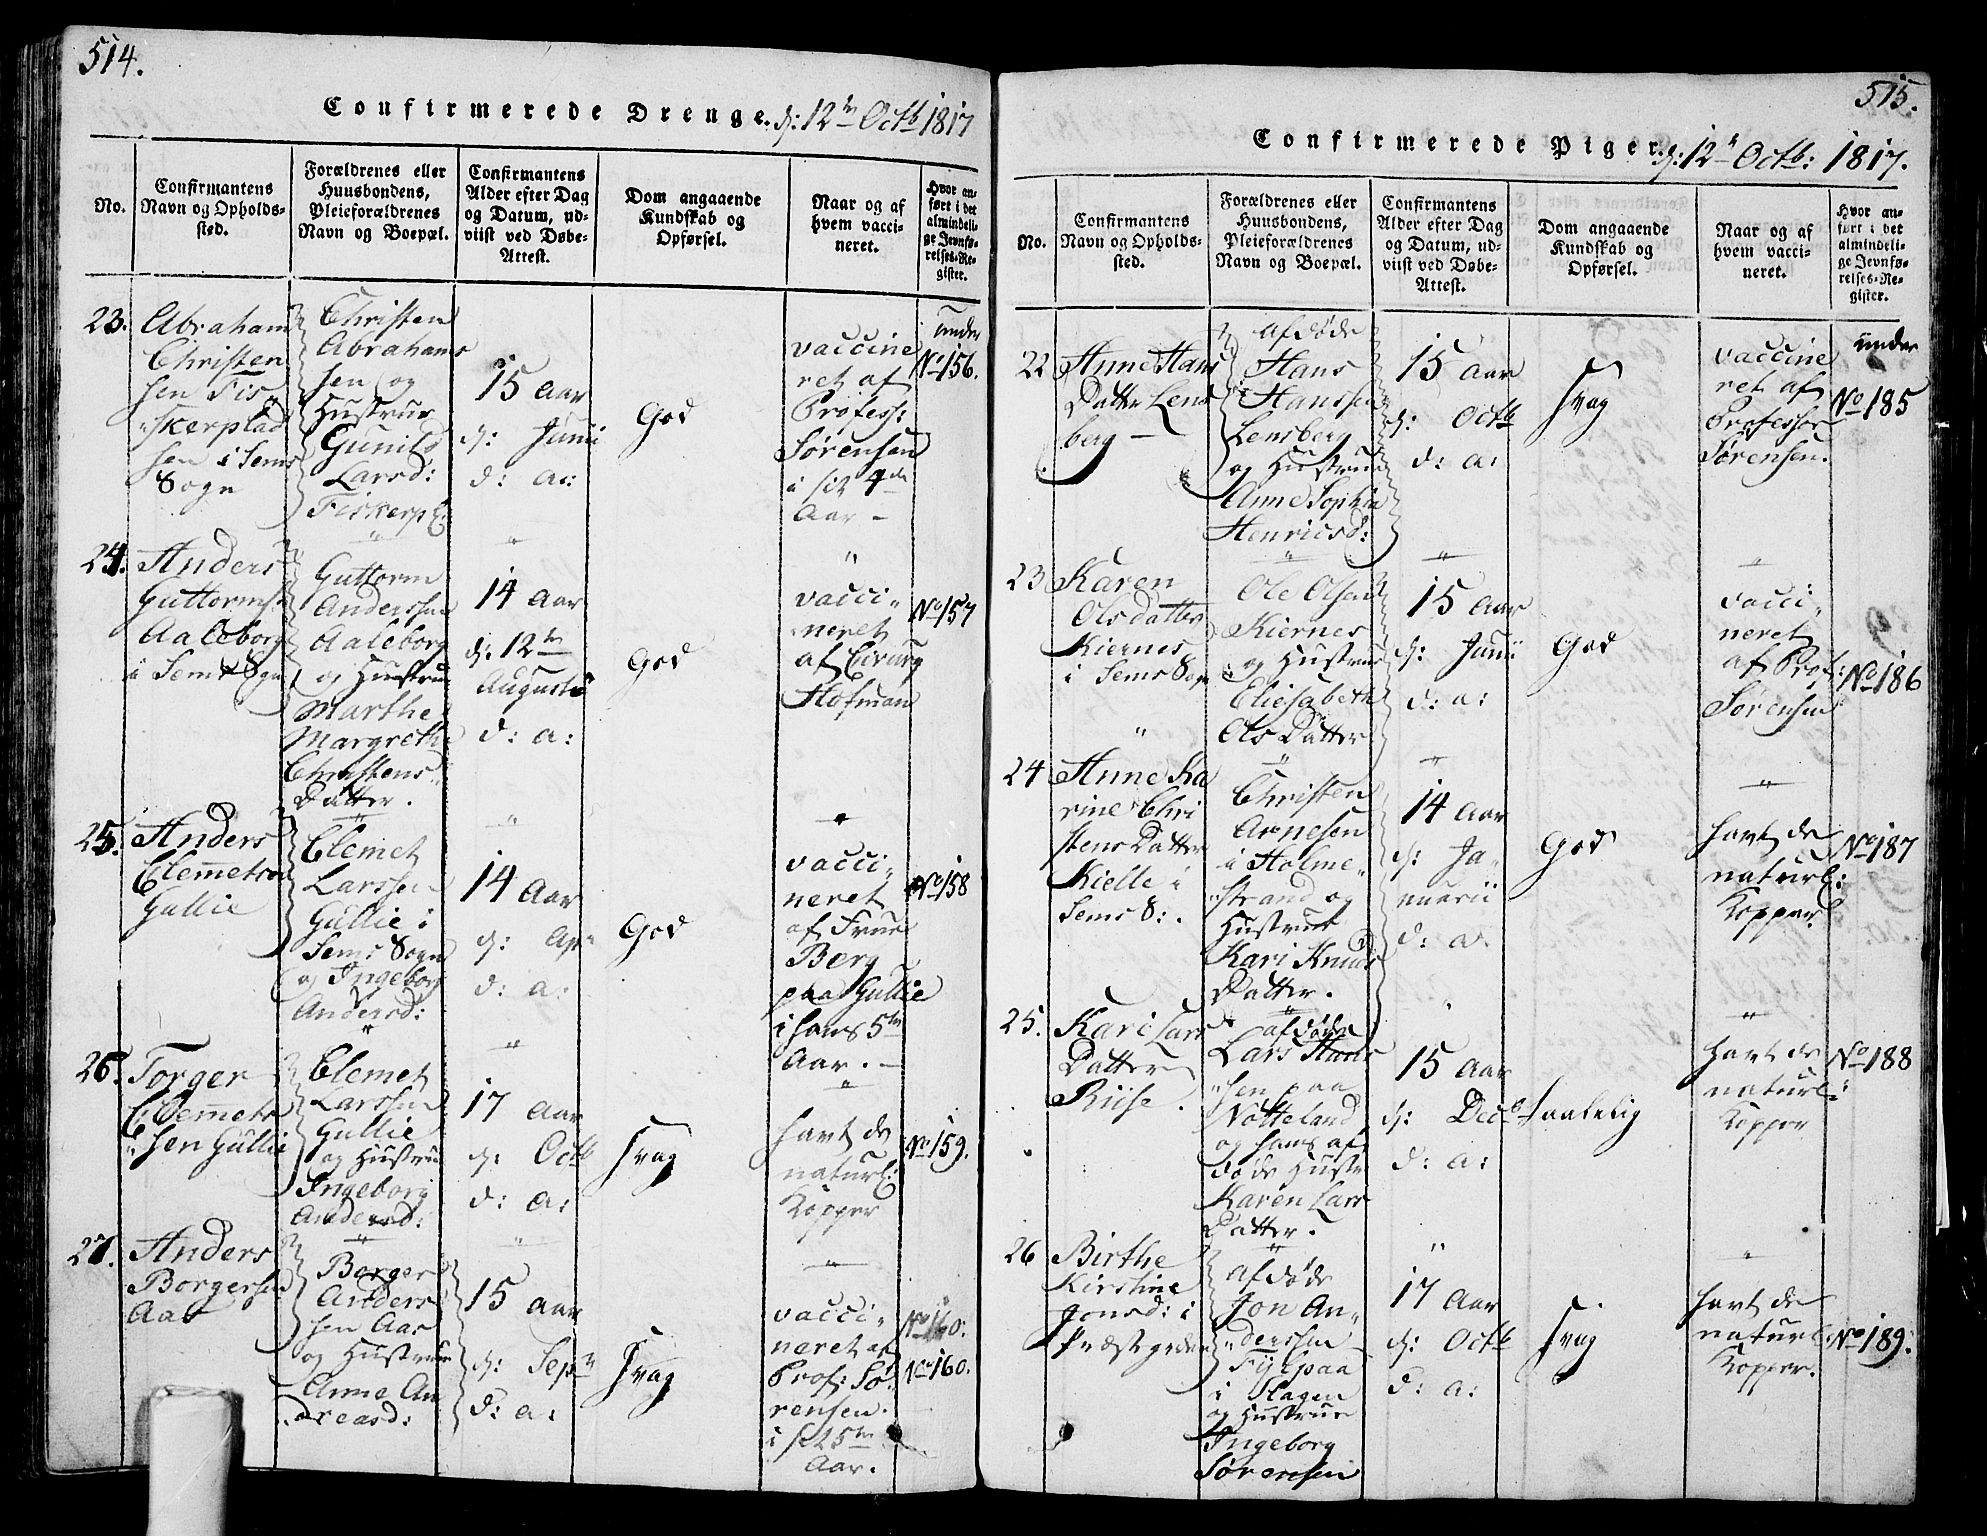 514.
Confirmerede Drenge. d: 12te Octb 1817
No.
Confirmantens
Navn og Opholds-
sted.
Forældrenes eller
Huusbondens,
Pleieforældrenes
Navn og Boepæl.
Confirmantens
Alder efter Dag
og Datum, ud-
viist ved Døbe-
Attest.
Dom angaaende
Kundskab og
Opførsel.
Naar og af
hvem vacci-
neret.
Hvor an-
ført i det
almindeli-
ge Jevnfø-
relses-Re-
gister.
23.
Abraham
Christen
sen Fis
skerplad
sen i Sems
Sogn
Christen
Abrahams
sen og
Hustrue
Gunild
Larsd:
Fiskerpl:
15 Aar
d: Junii
d: a:
God
vaccine
ret af
Profess:
Sørensen
i sit 4de
Aar -
under
No 156.
24.
Anders
Guttorms
Aaleborg
i Sems Sogn
Guttorm
Anderssen
Aaleborg
og Hustrue
Marthe
Margrethe
Christens
Datter.
14 Aar
d: 12te
Augusti
d: a:
God
vacci
neret
af Cirurg
Hofman
No 157
25.
Anders
Clemetsen
Gullie
Clemet
Larssen
Gullie i
Sems Sogn
og Ingeborg
Andersd:
14 Aar
d: Apr
d: a:
God
vacci
neret
af Frue
Berg
paa Gullie
i hans 5te
Aar. -
No 158
26.
Torger
Clemets
sen Gullie
Clemet
Larssen
Gullie
og Hustrue
Ingeborg
Andersd:
17 Aar
d: Octb
d: a:
svag
havt de
naturl:
Kopper
No 159.
27.
Anders
Borgersen
Aas
Borger
Anders
sen Aas
og Hustrue
Anne An
dreasd:
15 Aar
d: Sepr
d: a:
svag
vacci
neret af
Prof: Sø
rensen.
i sit 5te
Aar.
No 160.
No 160.
515.
Confirmerede Piger. d: 12te Octb: 1817.
No.
Confirmantens
Navn og Opholds-
sted.
Forældrenes eller
Huusbondens,
Pleieforældrenes
Navn og Boepæl.
Confirmantens
Alder efter Dag
og Datum, ud-
viist ved Døbe-
Attest.
Dom angaaende
Kundskab og
Opførsel.
Naar og af
hvem vacci-
neret.
Hvor an-
ført i det
almindeli-
ge Jevnfø-
relses-Re-
gister.
22
Anne Hans
Datter Lens
berg -
afdøde
Hans
Hanssen
Lensberg
og Hustrue
Anne Sophia
Henricsd:
15 Aar
d: Octb
d: a:
svag
vaccine
ret af
Professor
Sørensen.
under
No 185
23
Karen
Olsdatter
Kiernes
i Sems Sogn
Ole Olsen
Kiernes
og Hustrue
Eliesabeth
Ols Datter
15 Aar
d: Junii
d: a:
God
vacci
neret
af Prof:
Sørensen
No 186
24
Anne Ka
rine Chri
stens Datter
Kielle i
Sems S:.
Christen
Arnesen
i Holme
strand og
Hustrue
Kari Knuds
Datter.
14 Aar
d: Ja
nuarii
d: a.
God
havt de
naturl:
Kopper
No 187
25.
Kari Lars
Datter
Riise.
afdøde
Lars Hans
sen paa
Nøtteland
og hans af
døde Hustr
Karen Lars
Datter.
15 Aar
d: Decb
d: a:
Taalelig
havt de
naturl:
Kopper
No 188
26
Birthe
Kirstine
Jonsd: i
Præstgrden
afdøde
Jon An
derssen
Fylpaa
i Slagen
og Hustrue
Ingeborg
Sørensen
17 Aar
d: Octb
d: a:
svag
havt de
naturl:
Kopper.
No 189.